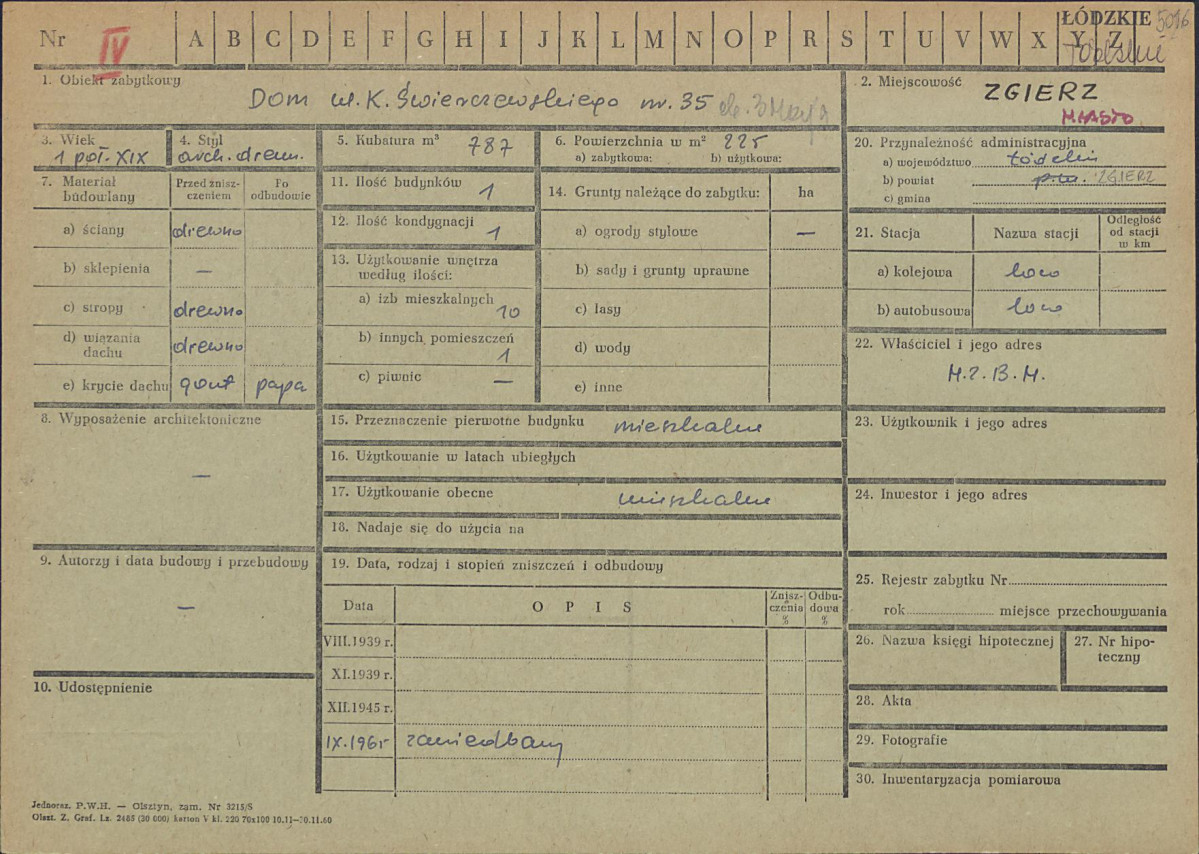 ŁÓDZKIE 5016
Nr IV A B C D E F G H I J K L M N O P R S T U V W X Y Z
1. Obiekt zabytkowy
Dom ul. K. Świerczewskiego nr. 35 ob. 3 Maja
2. Miejscowość ZGIERZ
MIASTO
3. Wiek
1 poł. XIX
4. Styl
arch. drewn.
5. Kubatura m³ 787
6. Powierzchnia w m² 225
a) zabytkowa: b) użytkowa:
7. Materiał budowlany
Przed zniszczeniem
Po odbudowie
a) ściany drewno
b) sklepienia —
c) stropy drewno
d) wiązania dachu drewno
e) krycie dachu gont papa
8. Wyposażenie architektoniczne
—
9. Autorzy i data budowy i przebudowy
—
10. Udostępnienie
11. Ilość budynków 1
12. Ilość kondygnacji 1
13. Użytkowanie wnętrza
według ilości:
a) izb mieszkalnych 10
b) innych pomieszczeń 1
c) piwnic —
14. Grunty należące do zabytku: ha
a) ogrody stylowe —
b) sady i grunty uprawne
c) lasy
d) wody
e) inne
15. Przeznaczenie pierwotne budynku mieszkalne
16. Użytkowanie w latach ubiegłych
17. Użytkowanie obecne mieszkalne
18. Nadaje się do użycia na
19. Data, rodzaj i stopień zniszczeń i odbudowy
Data OPIS Zniszczenia % Odbudowa %
VIII.1939 r.
XI.1939 r.
XII.1945 r.
IX.1965 zaniedbany
20. Przynależność administracyjna
a) województwo łódzkie
b) powiat p.w. ZGIERZ
c) gmina
21. Stacja Nazwa stacji Odległość od stacji w km
a) kolejowa loco
b) autobusowa loco
22. Właściciel i jego adres
M.Z.B.M.
23. Użytkownik i jego adres
24. Inwestor i jego adres
25. Rejestr zabytku Nr
rok miejsce przechowywania
26. Nazwa księgi hipotecznej
27. Nr hipoteczny
28. Akta
29. Fotografie
30. Inwentaryzacja pomiarowa
Jednoraz. P.W.H. — Olsztyn, zam. Nr 3215/S
Olszt. Z. Graf. Lz. 2485 (30 000) karton V kl. 220 70x100 10.11—30.11.60